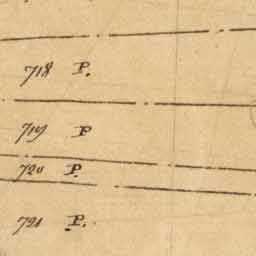 718 P.
719 P
720 P.
721 P.